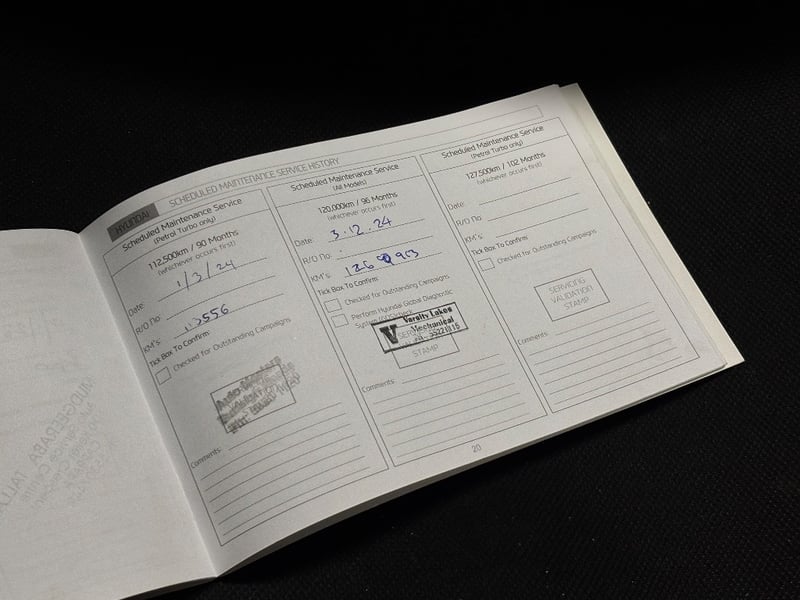 HYUNDAI
SCHEDULED MAINTENANCE SERVICE HISTORY
Scheduled Maintenance Service
(Petrol Turbo only)
112,500km / 90 Months
(whichever occurs first)
Date: 1/3/24
R/O No
KM's: 113556
Tick Box To Confirm:
Checked for Outstanding Campaigns
Comments:
Scheduled Maintenance Service
(All Models)
120,000km / 96 Months
(whichever occurs first)
Date: 3.12.24
R/O No
KM's:
Tick Box To Confirm:
Checked for Outstanding Campaigns
Perform Hyundai Global Diagnostic
System
Varsity Lakes
Mechanical
STAMP
Comments:
Scheduled Maintenance Service
(Petrol Turbo only)
127,500km / 102 Months
(whichever occurs first)
Date:
R/O No
KM's:
Tick Box To Confirm:
Checked for Outstanding Campaigns
SERVICING
VALIDATION
STAMP
Comments:
20